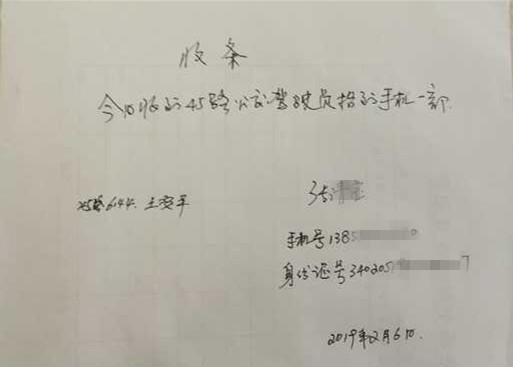 收条
今日收到45路公交驾驶员拾到手机一部
45路644. 王安平
张
手机号1385
身份证号3402051 7
2019年2月6日.